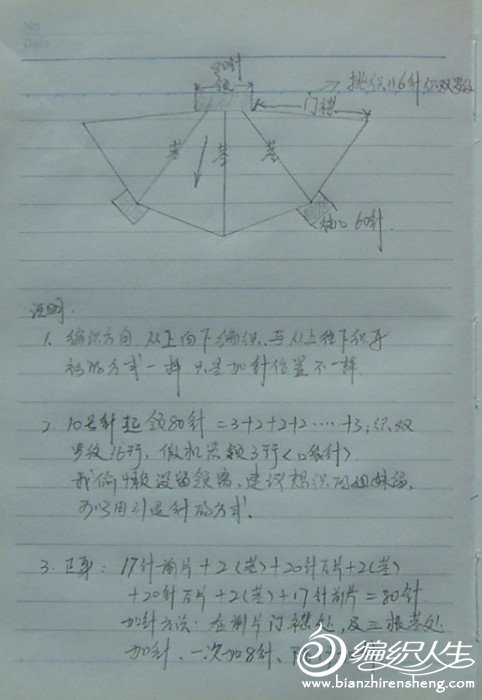 No.
Date
80针
领
挑织116针 织双罗纹
门襟
茎 茎 茎
袖口60针
说明:
1. 编织方向 从上向下编织,与从上往下织毛
衫的方式一样 只是加针位置不一样
2. 10号针起领80针 =3+2+2+2……+3;织双
罗纹16行,假机器领3行
我偷懒没留领窝,建议想织的姐妹留,
可以用引退针的方式.
3. 正身: 17针前片+2(茎)+20针后片+2(茎)
+20针后片+2(茎)+17针前片=80针
加针方法: 在前片门襟处,及三根茎处
加针、一次加8针、
编织人生
www.bianzhirensheng.com